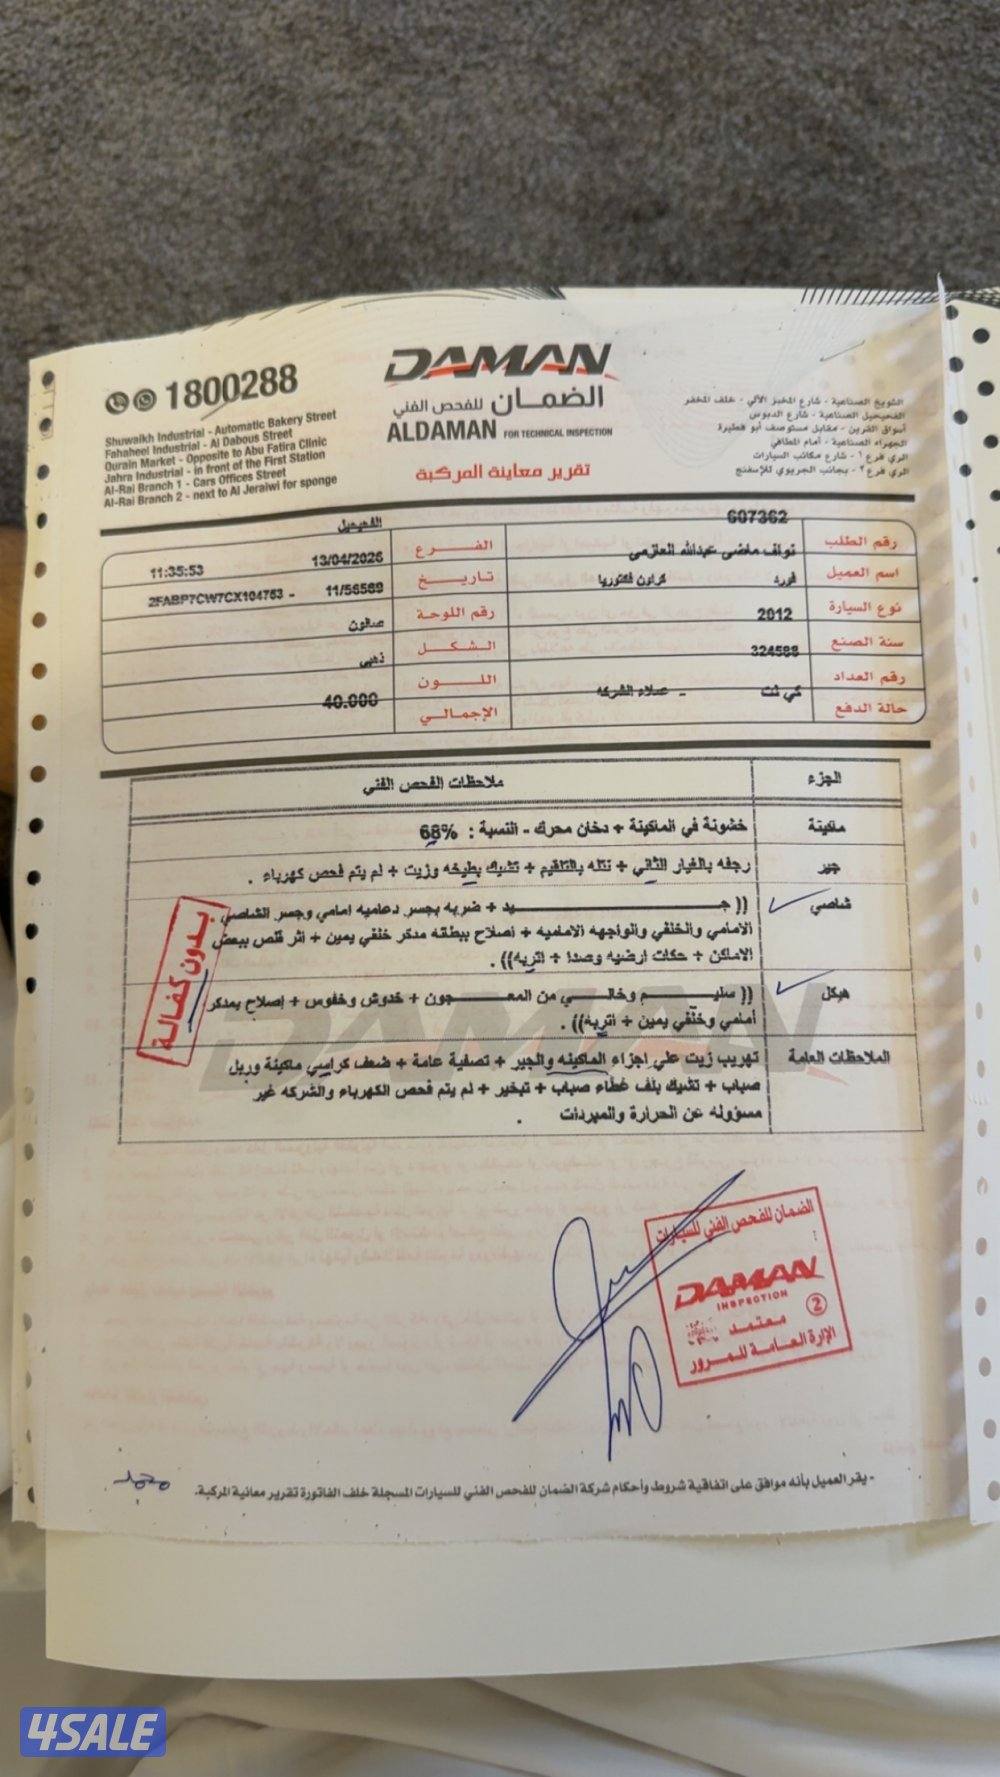 1800288
Shuwaikh Industrial - Automatic Bakery Street
Fahaheel Industrial - Al Dabous Street
Qurain Market - Opposite to Abu Fatira Clinic
Jahra Industrial - in front of the First Station
Al-Rai Branch 1 - Cars Offices Street
Al-Rai Branch 2 - next to Al Jeraiwi for sponge
DAMAN
الضمان للفحص الفني
ALDAMAN FOR TECHNICAL INSPECTION
تقرير معاينة المركبة
الشويخ الصناعية - شارع المخبز الآلي - خلف المخفر
الفحيحيل الصناعية - شارع الدبوس
أسواق القرين - مقابل مستوصف أبو فطيرة
الجهراء الصناعية - أمام المطافي
الري فرع ١ - شارع مكاتب السيارات
الري فرع ٢ - بجانب الجريوي للإسفنج
رقم الطلب 607362
الفرع الفحيحيل
اسم العميل نواف ماضي عبدالله العازمي
تاريخ 13/04/2026 11:35:53
نوع السيارة فورد كراون فكتوريا
رقم اللوحة 11/56589 - 2FABP7CW7CX104753
سنة الصنع 2012
الشكل صالون
رقم العداد 324588
اللون ذهبي
حالة الدفع كي نت - عملاء الشركه
الإجمالي 40.000
الجزء ملاحظات الفحص الفني
ماكينة خشونة في الماكينة + دخان محرك - النسبة : 68%
جير رجفه بالغيار الثاني + نتله بالتلقيم + تشيك بطيخه وزيت + لم يتم فحص كهرباء .
شاصي (( جـــيد + ضربه بجسر دعاميه امامي وجسر الشاصي
الامامي والخلفي والواجهه الاماميه + اصلاح ببطانه مدكر خلفي يمين + اثر قلص ببعض
الاماكن + حكات ارضيه وصدا + اتربه)) .
هيكل (( سليـــم وخالـــي من المعـــجون + خدوش وخفوس + إصلاح بمدكر
أمامي وخلفي يمين + اتربه)) .
الملاحظات العامة تهريب زيت علي اجزاء الماكينه والجير + تصفية عامة + ضعف كراسي ماكينة وربل
صباب + تشيك بلف غطاء صباب + تبخير + لم يتم فحص الكهرباء والشركه غير
مسؤوله عن الحرارة والمبردات .
بدون كفالة
الضمان للفحص الفني للسيارات
DAMAN
INSPECTION
معتمد 2
الإدارة العامة للمرور
- يقر العميل بأنه موافق على اتفاقية شروط وأحكام شركة الضمان للفحص الفني للسيارات المسجلة خلف الفاتورة تقرير معاينة المركبة.
4SALE